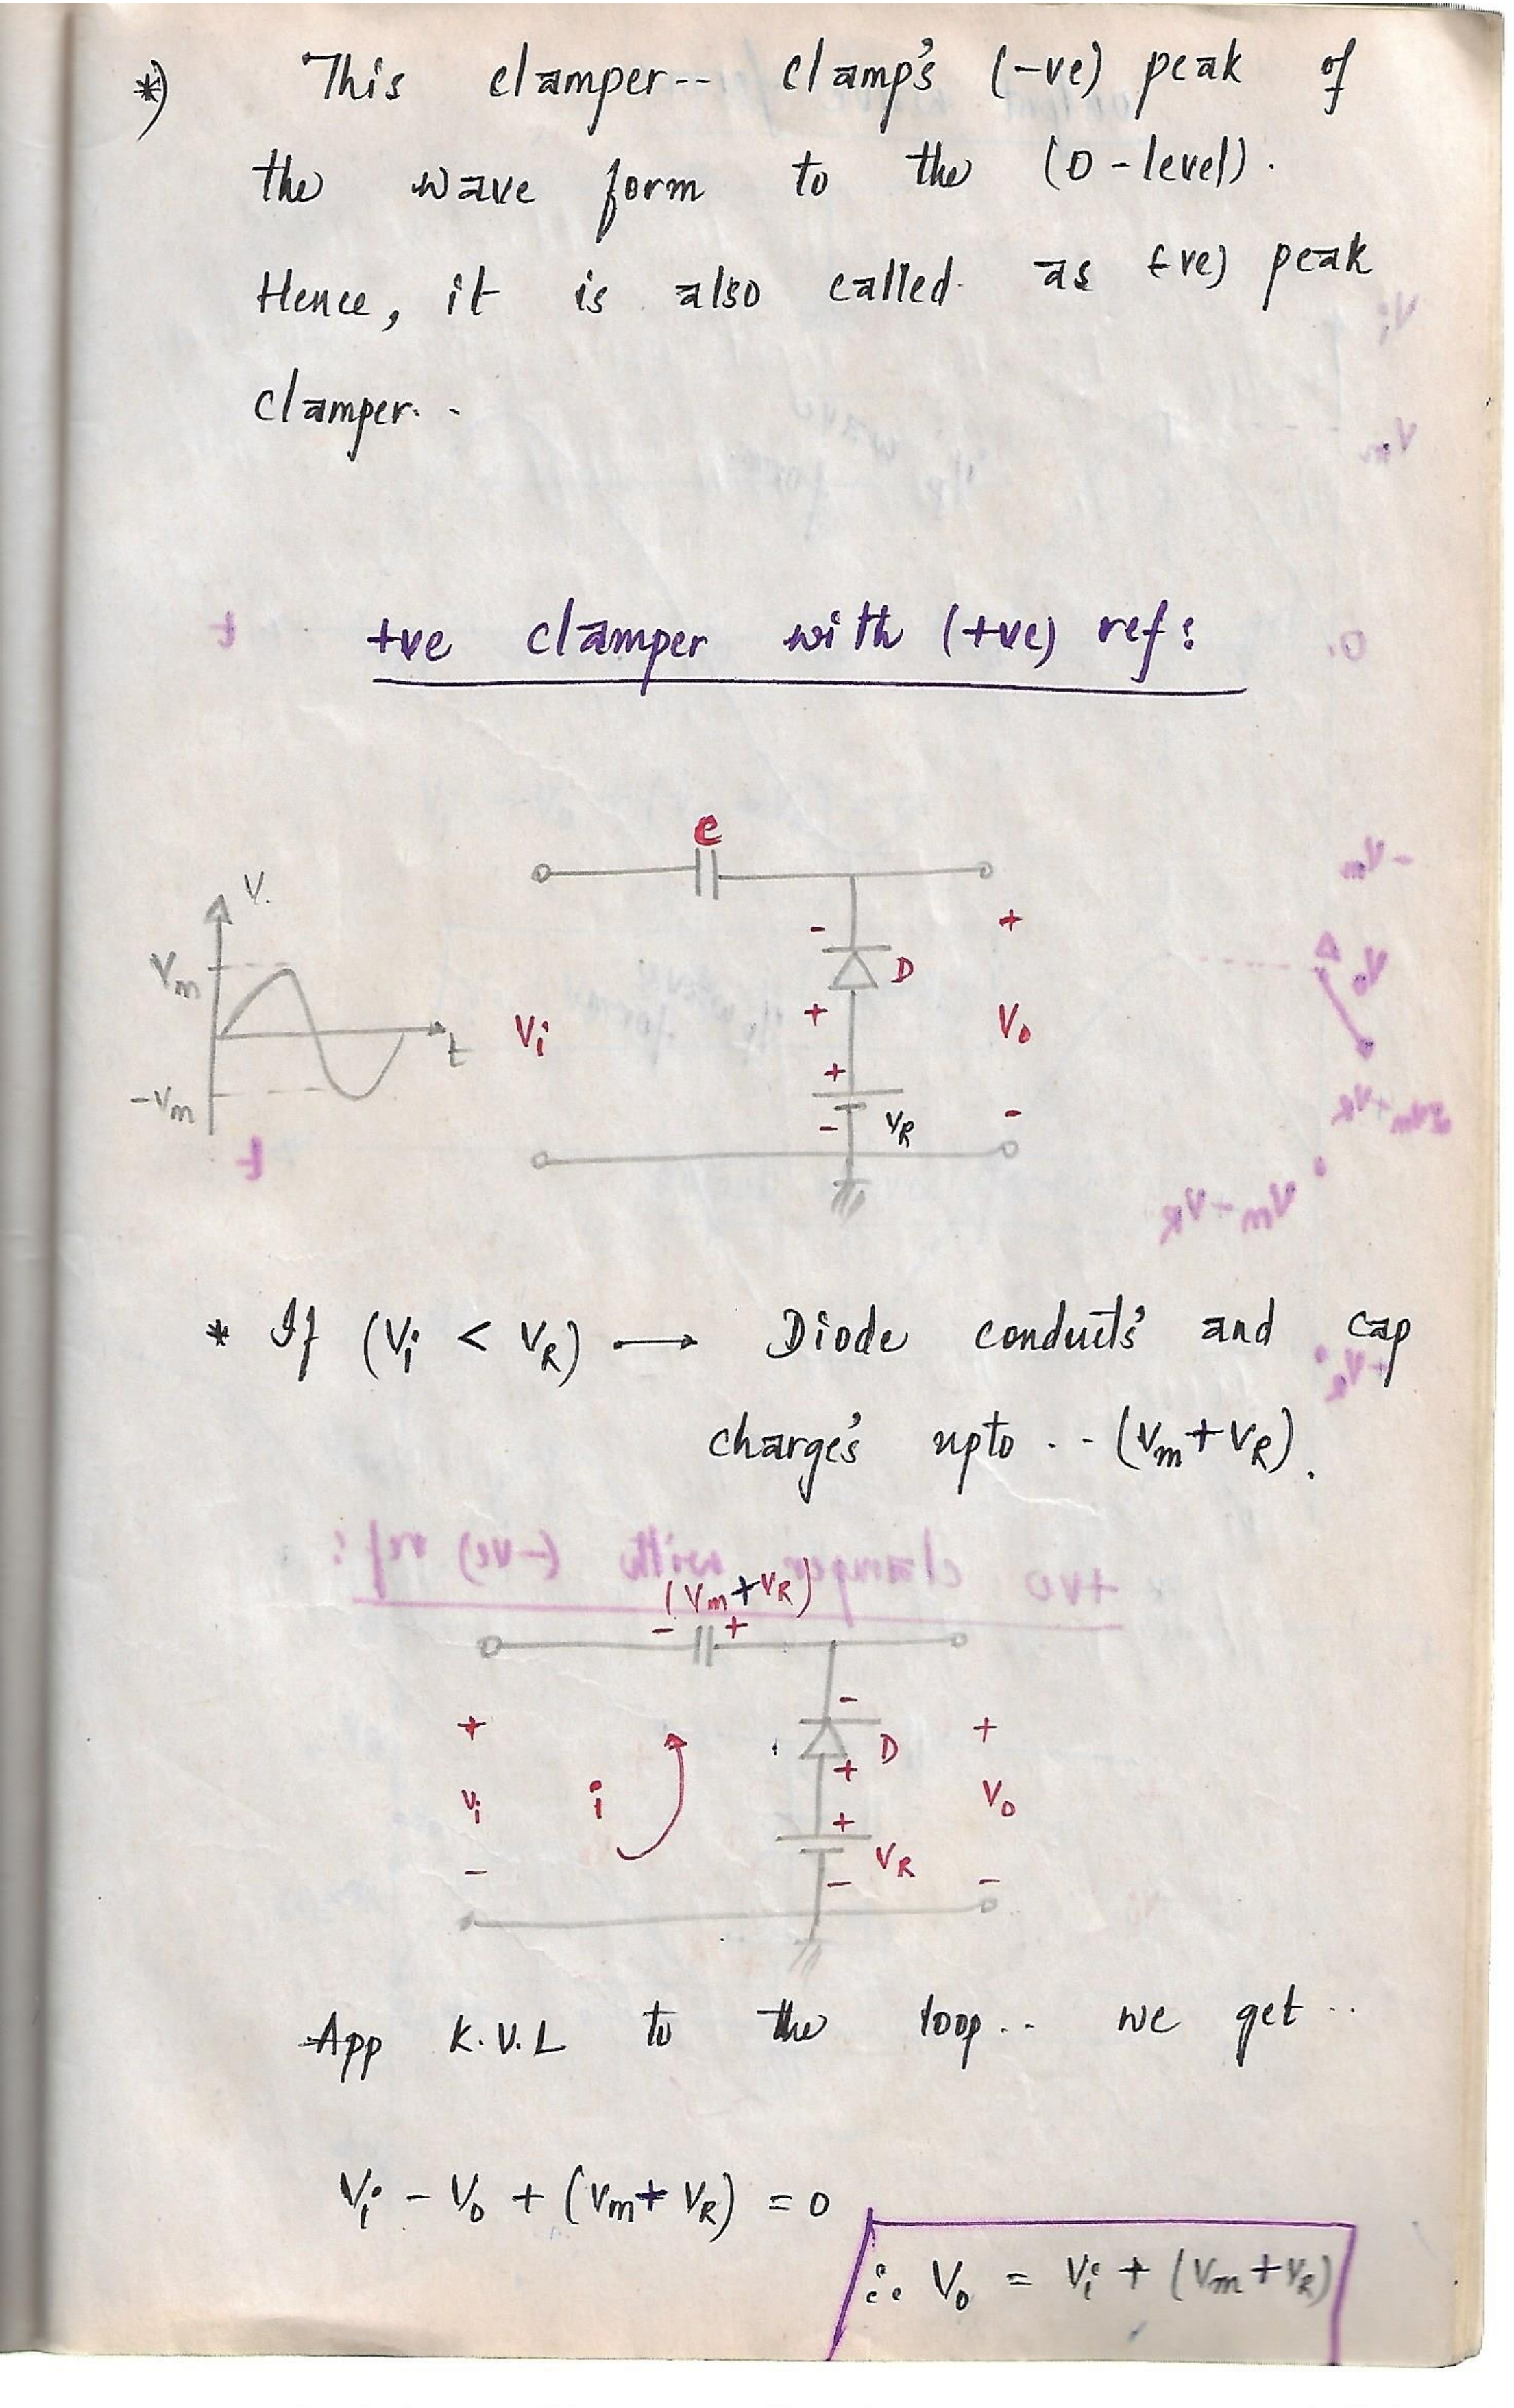 *) This clamper-- clamp's (-ve) peak of
the wave form to the (0-level).
Hence, it is also called as (-ve) peak
clamper..
+ve clamper with (+ve) ref:
C
V.
Vm
-Vm
t
Vi
- D
+
+
- VR
+
Vo
-
* If (Vi < VR) → Diode conducts' and cap
charge's upto .. (Vm+VR).
(Vm+VR)
- +
+
Vi
-
i
-
D
+
+
VR
-
+
Vo
-
App K.V.L to the loop.. we get..
Vi - Vo + (Vm+VR) = 0
∴ Vo = Vi + (Vm+VR)